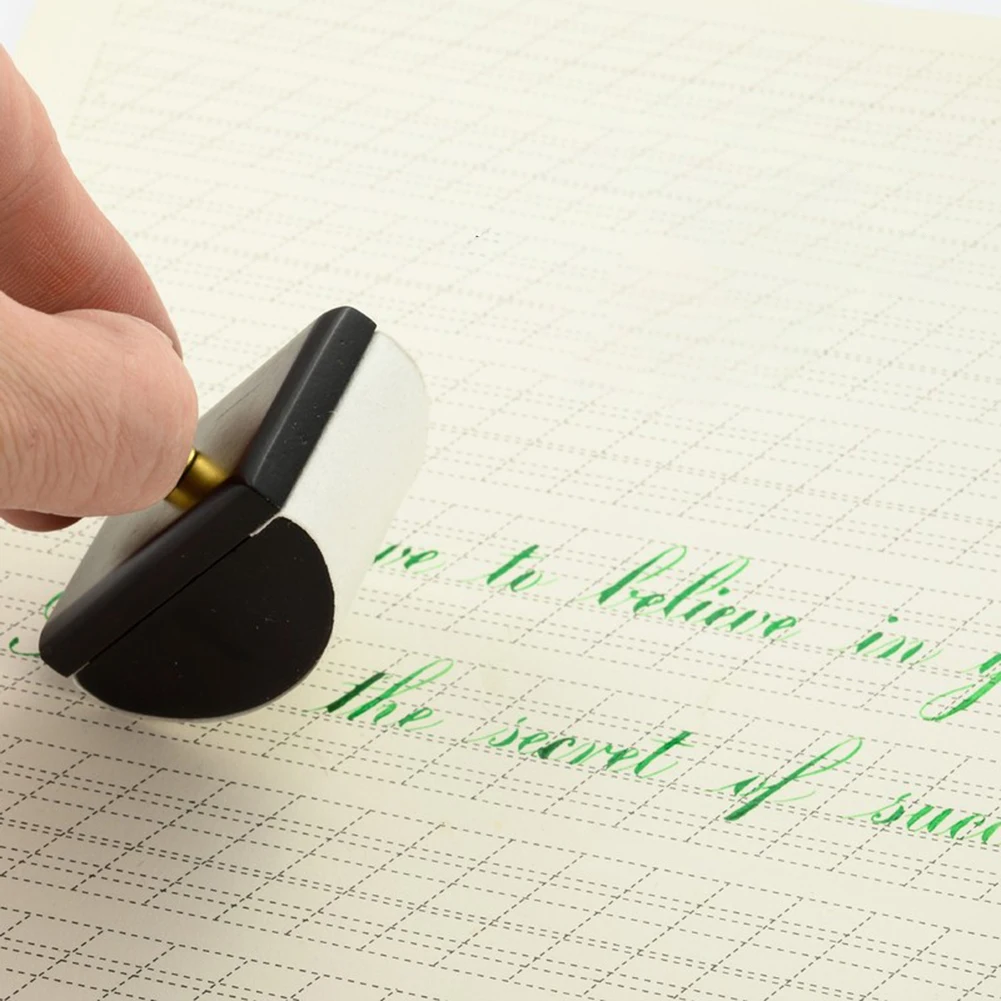 ve to believe in y
the secret of succ